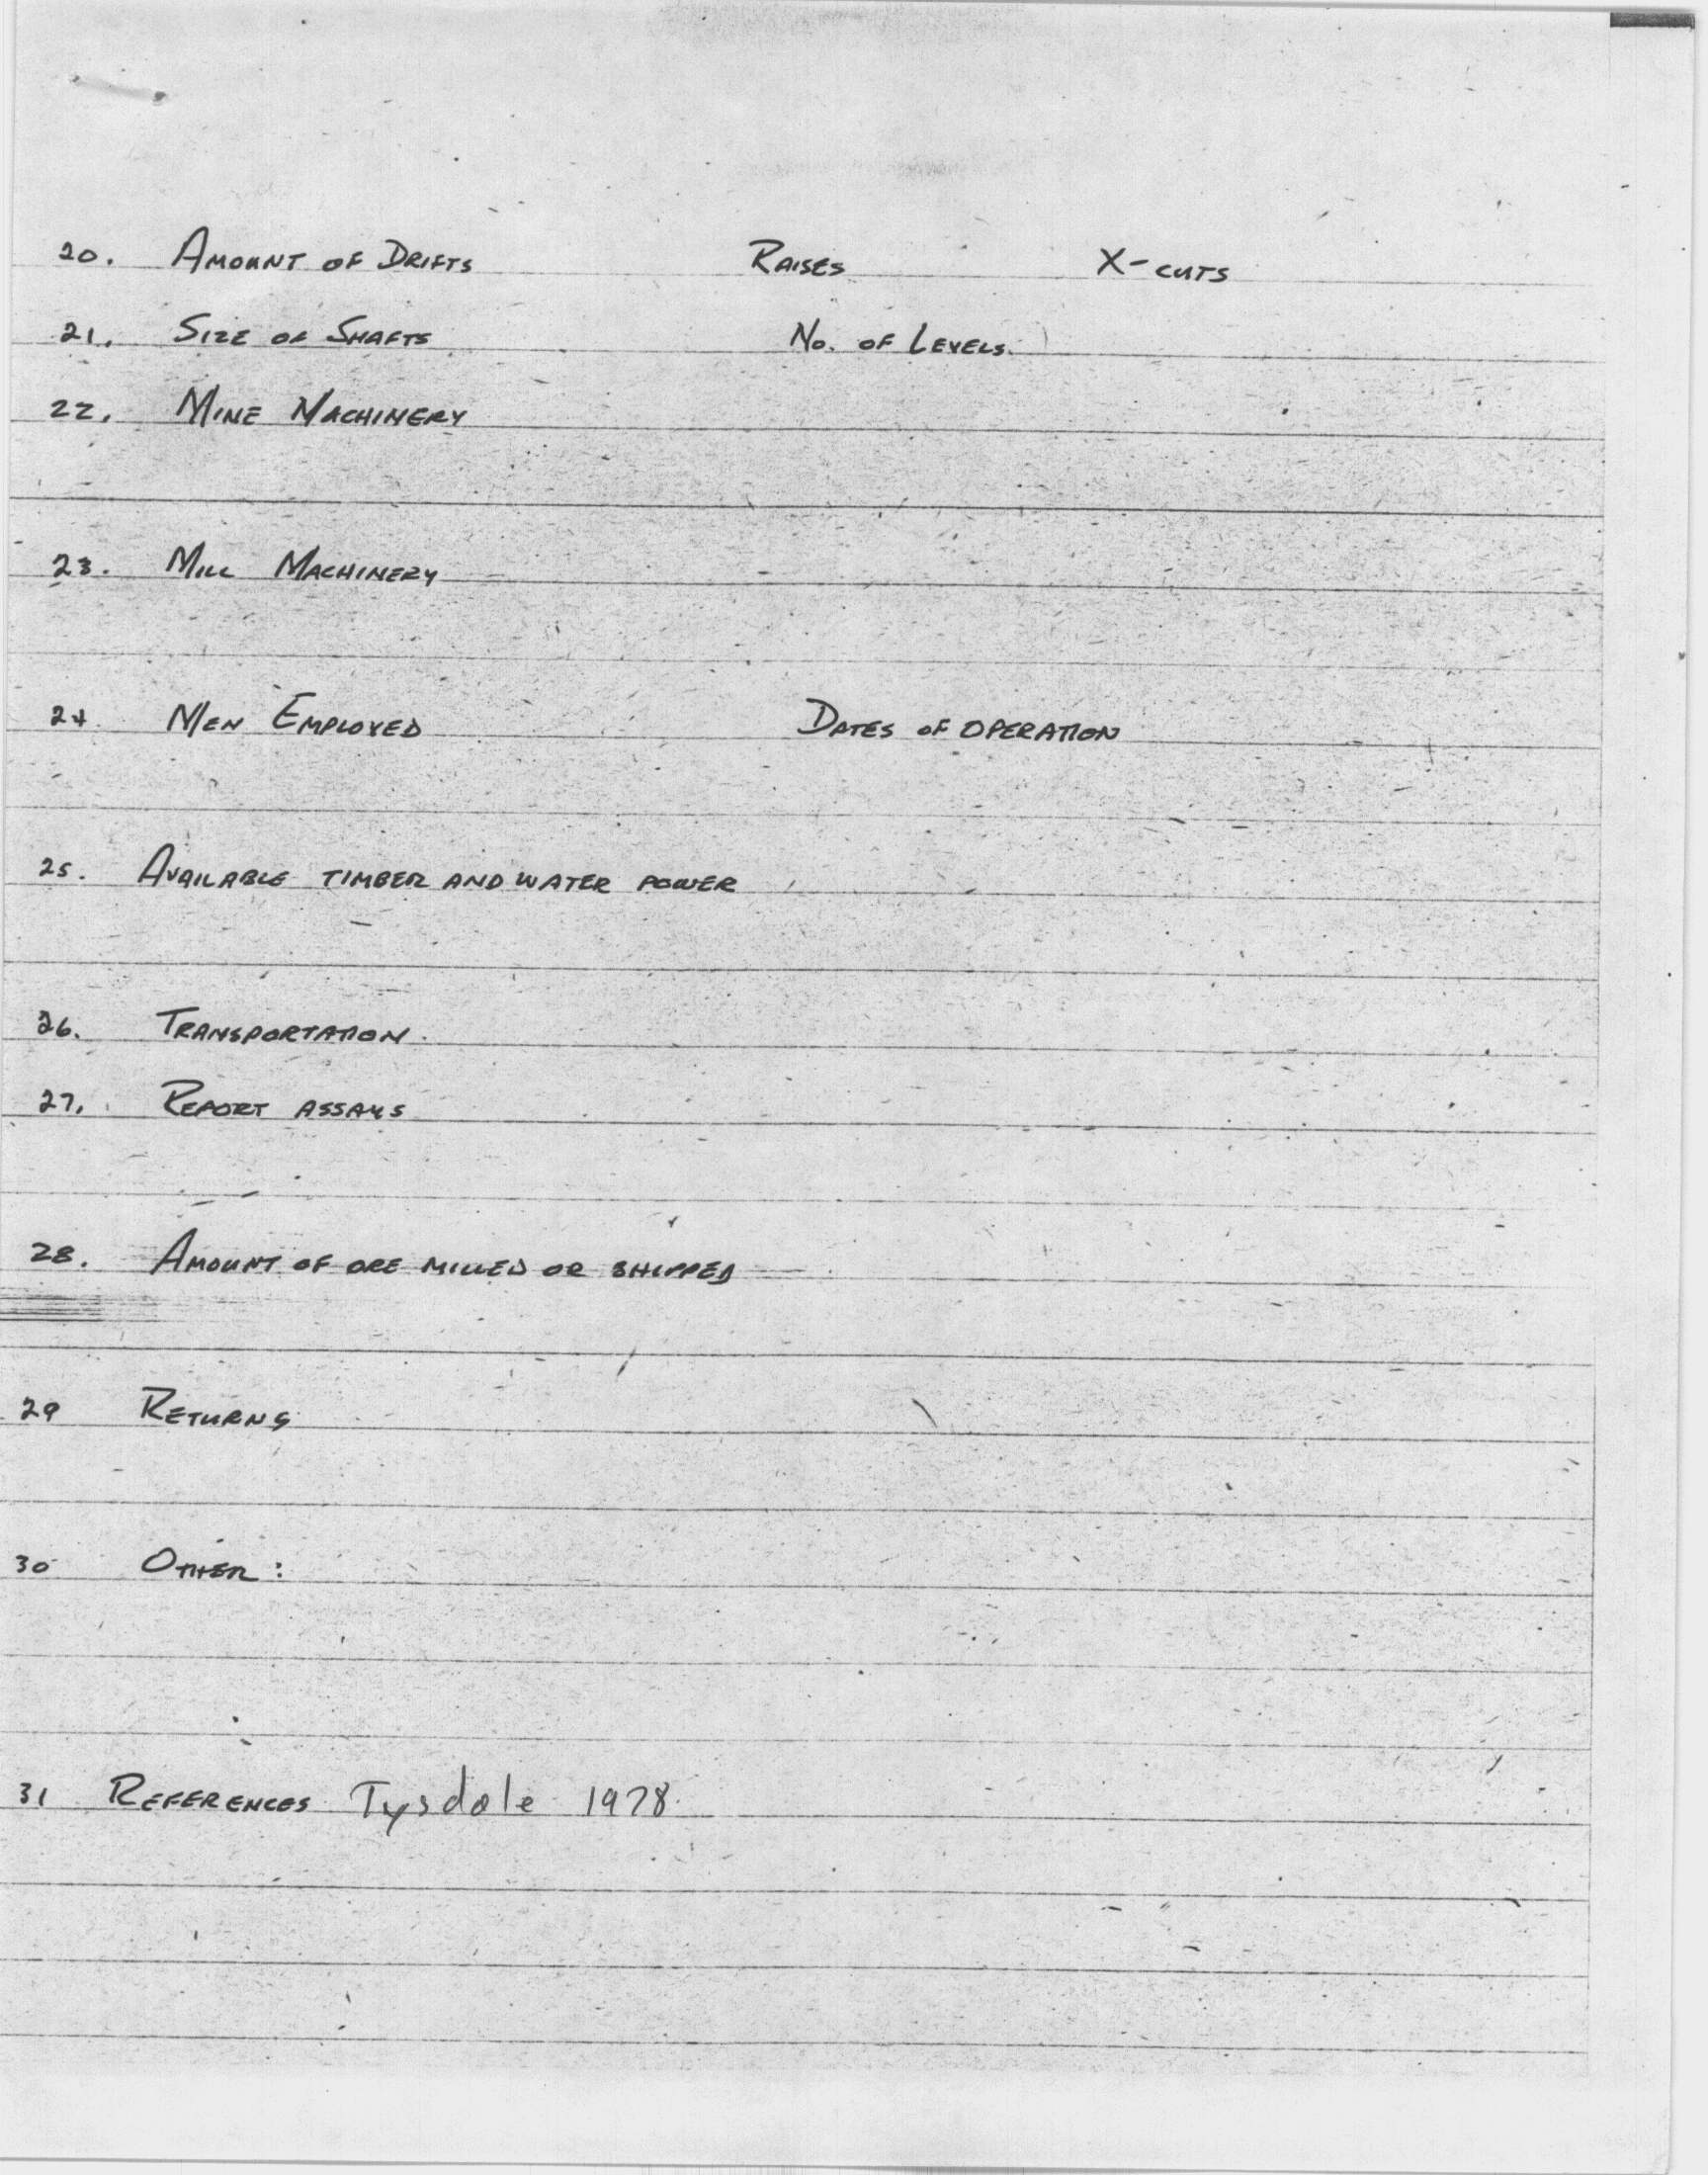 20. AMOUNT OF DRIFTS RAISES X-CUTS
21. SIZE OF SHAFTS NO. OF LEVELS.
22. MINE MACHINERY
23. MILL MACHINERY
24. MEN EMPLOYED DATES OF OPERATION
25. AVAILABLE TIMBER AND WATER POWER
26. TRANSPORTATION.
27. REPORT ASSAYS
28. AMOUNT OF ORE MILLED OR SHIPPED
29 RETURNS
30 OTHER:
31 REFERENCES Tysdale 1978